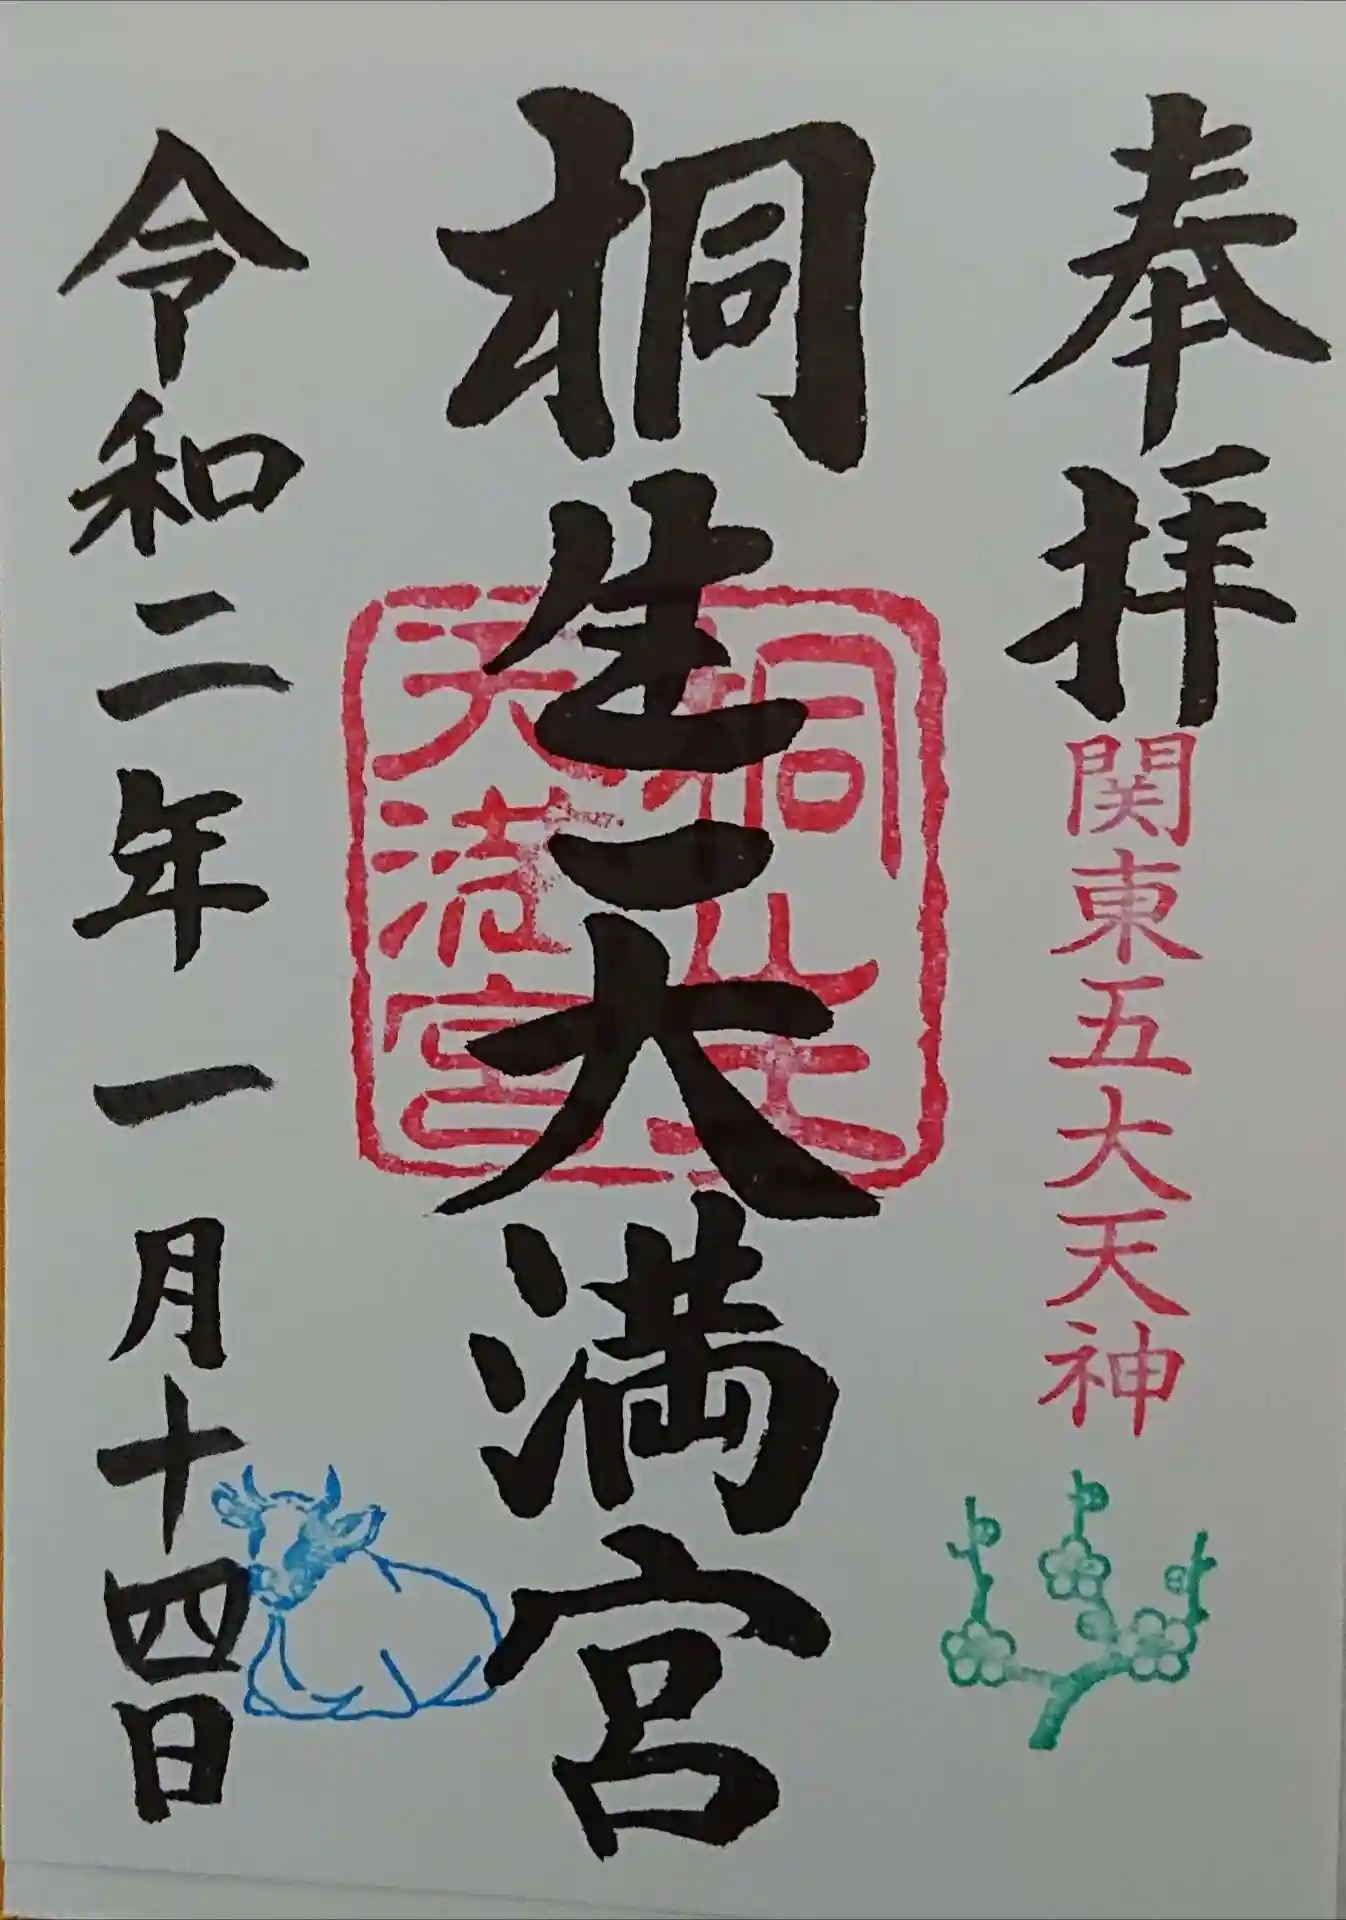 奉拝
関東五大天神
桐生天満宮
桐生
天満宮
令和二年一月十四日